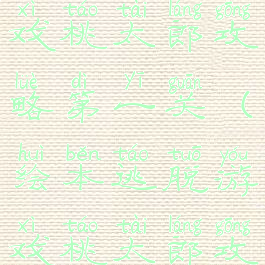 xì táo tài láng gōng
戏桃太郎攻
lüè dì yī guān
略第一关（
huì běn táo tuō yóu
绘本逃脱游
xì táo tài láng gōng
戏桃太郎攻